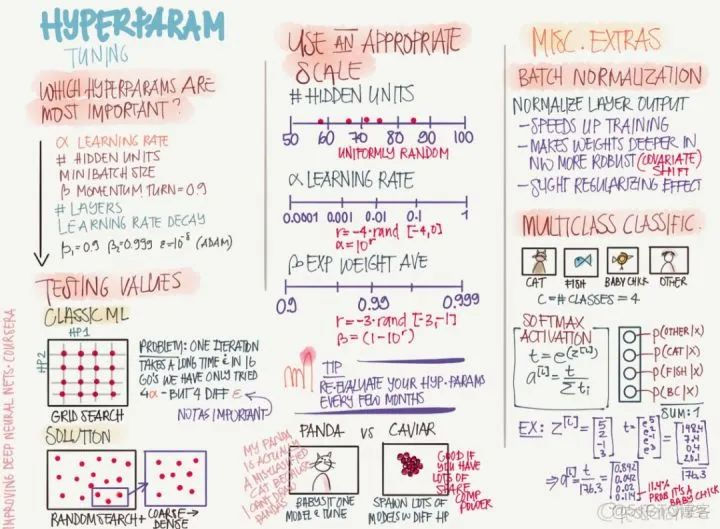 HYPERPARAM
TUNING
WHICH HYPERPARAMS ARE
MOST IMPORTANT?
α LEARNING RATE
# HIDDEN UNITS
MINIBATCH SIZE
β MOMENTUM TURN = 0.9
# LAYERS
LEARNING RATE DECAY
β₁=0.9 β₂=0.999 ε=10⁻⁸ (ADAM)
TESTING VALUES
CLASSIC ML
HP1
HP2
GRID SEARCH
PROBLEM: ONE ITERATION
TAKES A LONG TIME & IN 16
GO'S WE HAVE ONLY TRIED
4α - BUT 4 DIFF ε
NOT AS IMPORTANT
SOLUTION
RANDOM SEARCH + COARSE → DENSE
IMPROVING DEEP NEURAL NETS · COURSERA
USE AN APPROPRIATE
SCALE
# HIDDEN UNITS
50 60 70 80 90 100
UNIFORMLY RANDOM
α LEARNING RATE
0.0001 0.001 0.01 0.1 1
r = -4 · rand [-4,0]
α = 10ʳ
β EXP WEIGHT AVE
0.9 0.99 0.999
r = -3 · rand [-3,-1]
β = (1-10ʳ)
TIP
RE-EVALUATE YOUR HYP. PARAMS
EVERY FEW MONTHS
PANDA VS CAVIAR
MY PANDA
IS ACTUALLY
A MISCLASSIFIED
CAT BECAUSE
I CAN'T DRAW
PANDAS
BABYSIT ONE
MODEL & TUNE
GOOD IF
YOU HAVE
LOTS OF
SPARE
COMP
POWER
SPAWN LOTS OF
MODELS W DIFF HP
MISC. EXTRAS
BATCH NORMALIZATION
NORMALIZE LAYER OUTPUT
- SPEEDS UP TRAINING
- MAKES WEIGHTS DEEPER IN
NW MORE ROBUST (COVARIATE SHIFT)
- SLIGHT REGULARIZING EFFECT
MULTICLASS CLASSIFIC.
CAT FISH BABY CHICK OTHER
C = # CLASSES = 4
SOFTMAX
ACTIVATION
t = e^(z^[L])
a^[L] = t / Σtᵢ
P(OTHER|X)
P(CAT|X)
P(FISH|X)
P(BC|X)
SUM: 1
EX: z^[L] = [5 2 -1 3] t = [e⁵ e² e⁻¹ e³] = [148.4 7.4 0.4 20.1]
176.3
⇒ a^[L] = t / 176.3 = [0.842 0.042 0.02 0.114]
11.4%
PROB IT'S A
BABY CHICK